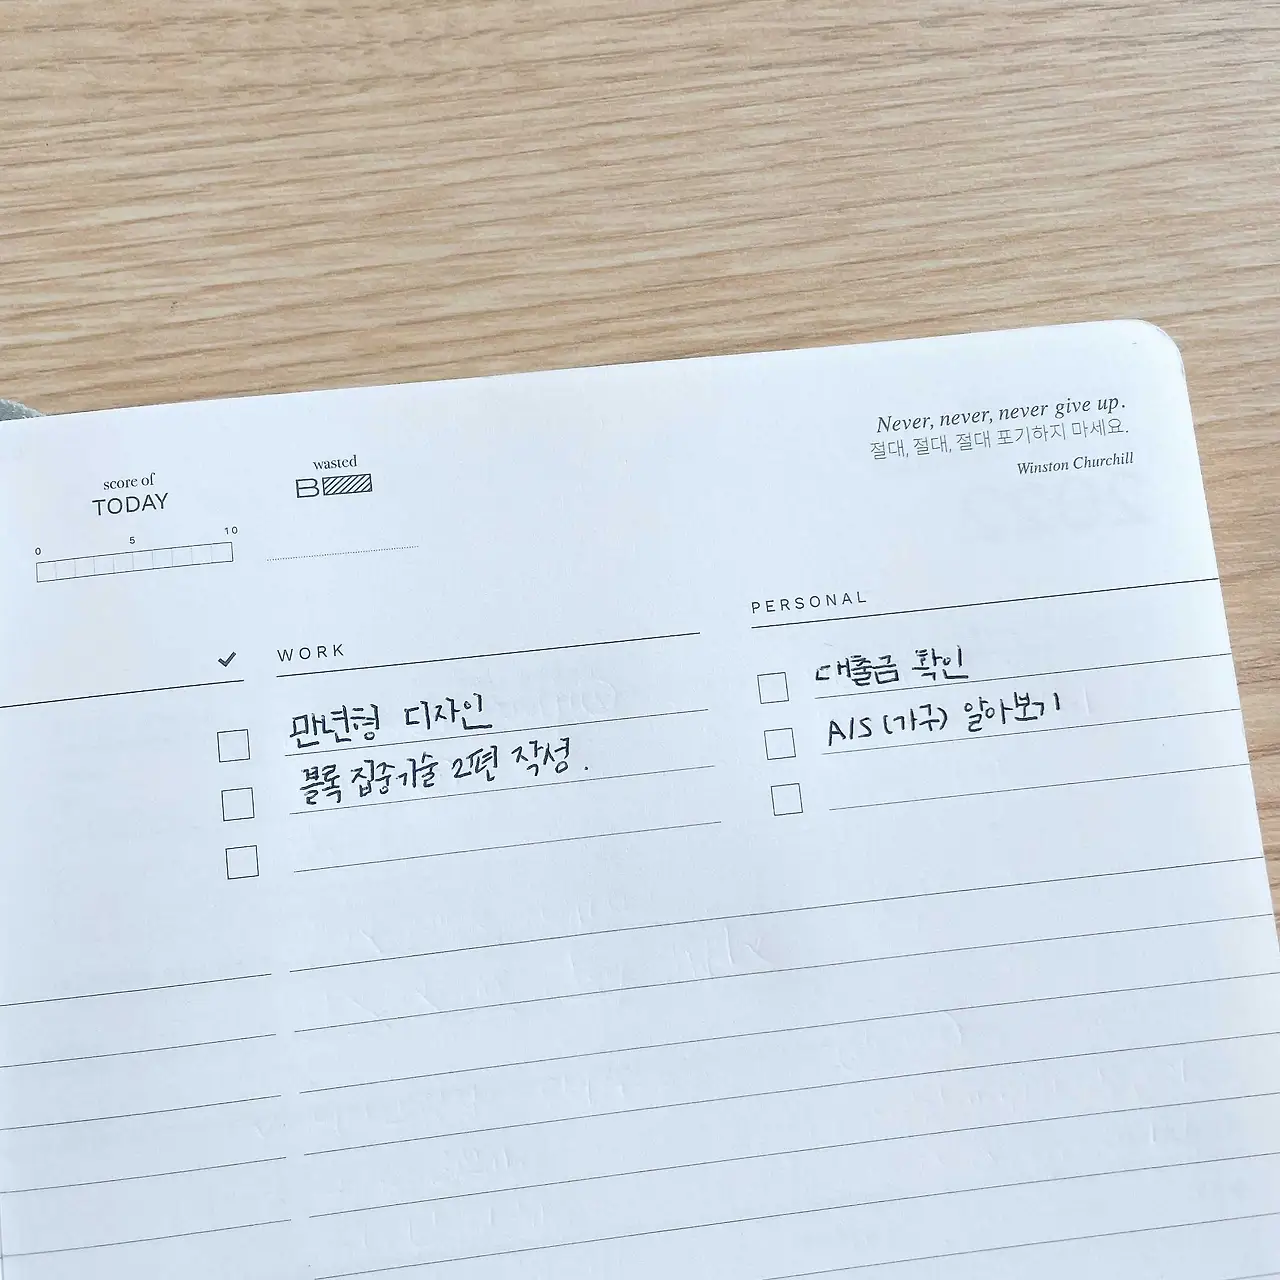 Never, never, never give up.
절대, 절대, 절대 포기하지 마세요.
Winston Churchill
score of
TODAY
0 5 10
wasted
B
WORK
만년형 디자인
블록 집중기술 2편 작성.
PERSONAL
대출금 확인
A/S (가구) 알아보기